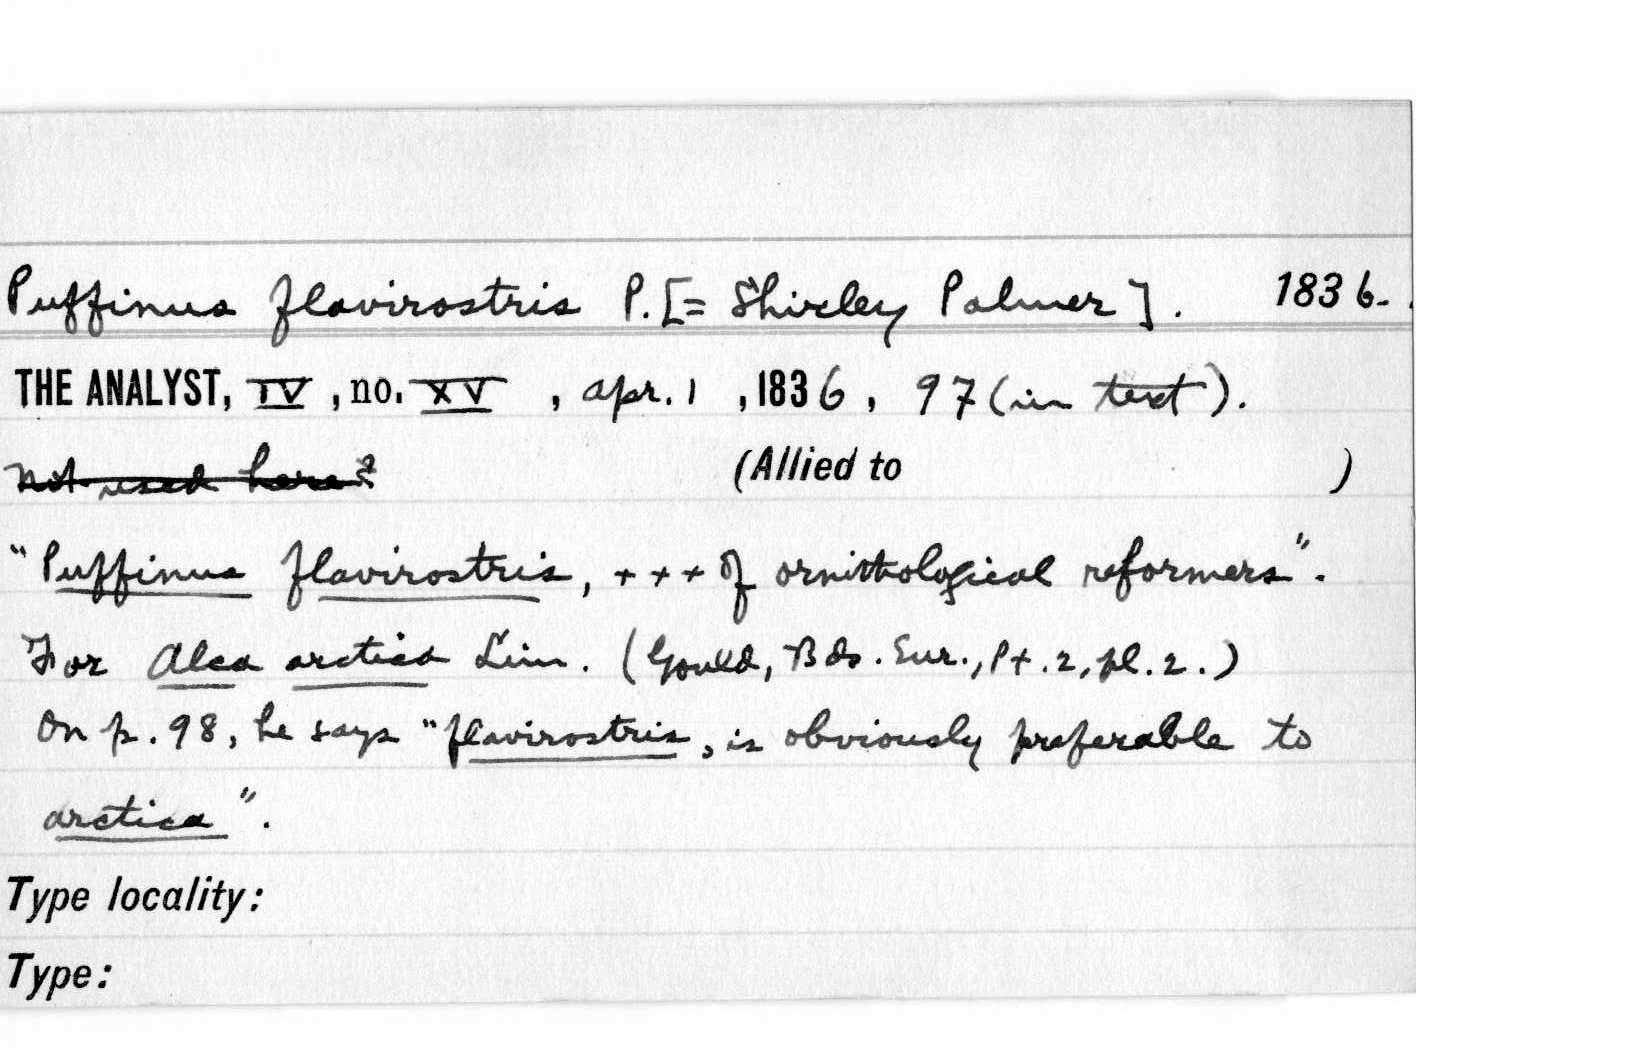 Puffinus flavirostris P. [= Shirley Palmer]. 1836.
THE ANALYST, IV, no. XV, apr. 1, 1836, 97 (in text).
Not used here? (Allied to )
"Puffinus flavirostris, +++ of ornithological reformers".
For Alca arctica Linn. (Gould, Bds. Eur., Pt. 2, pl. 2.)
On p. 98, he says "flavirostris, is obviously preferable to
arctica".
Type locality:
Type: